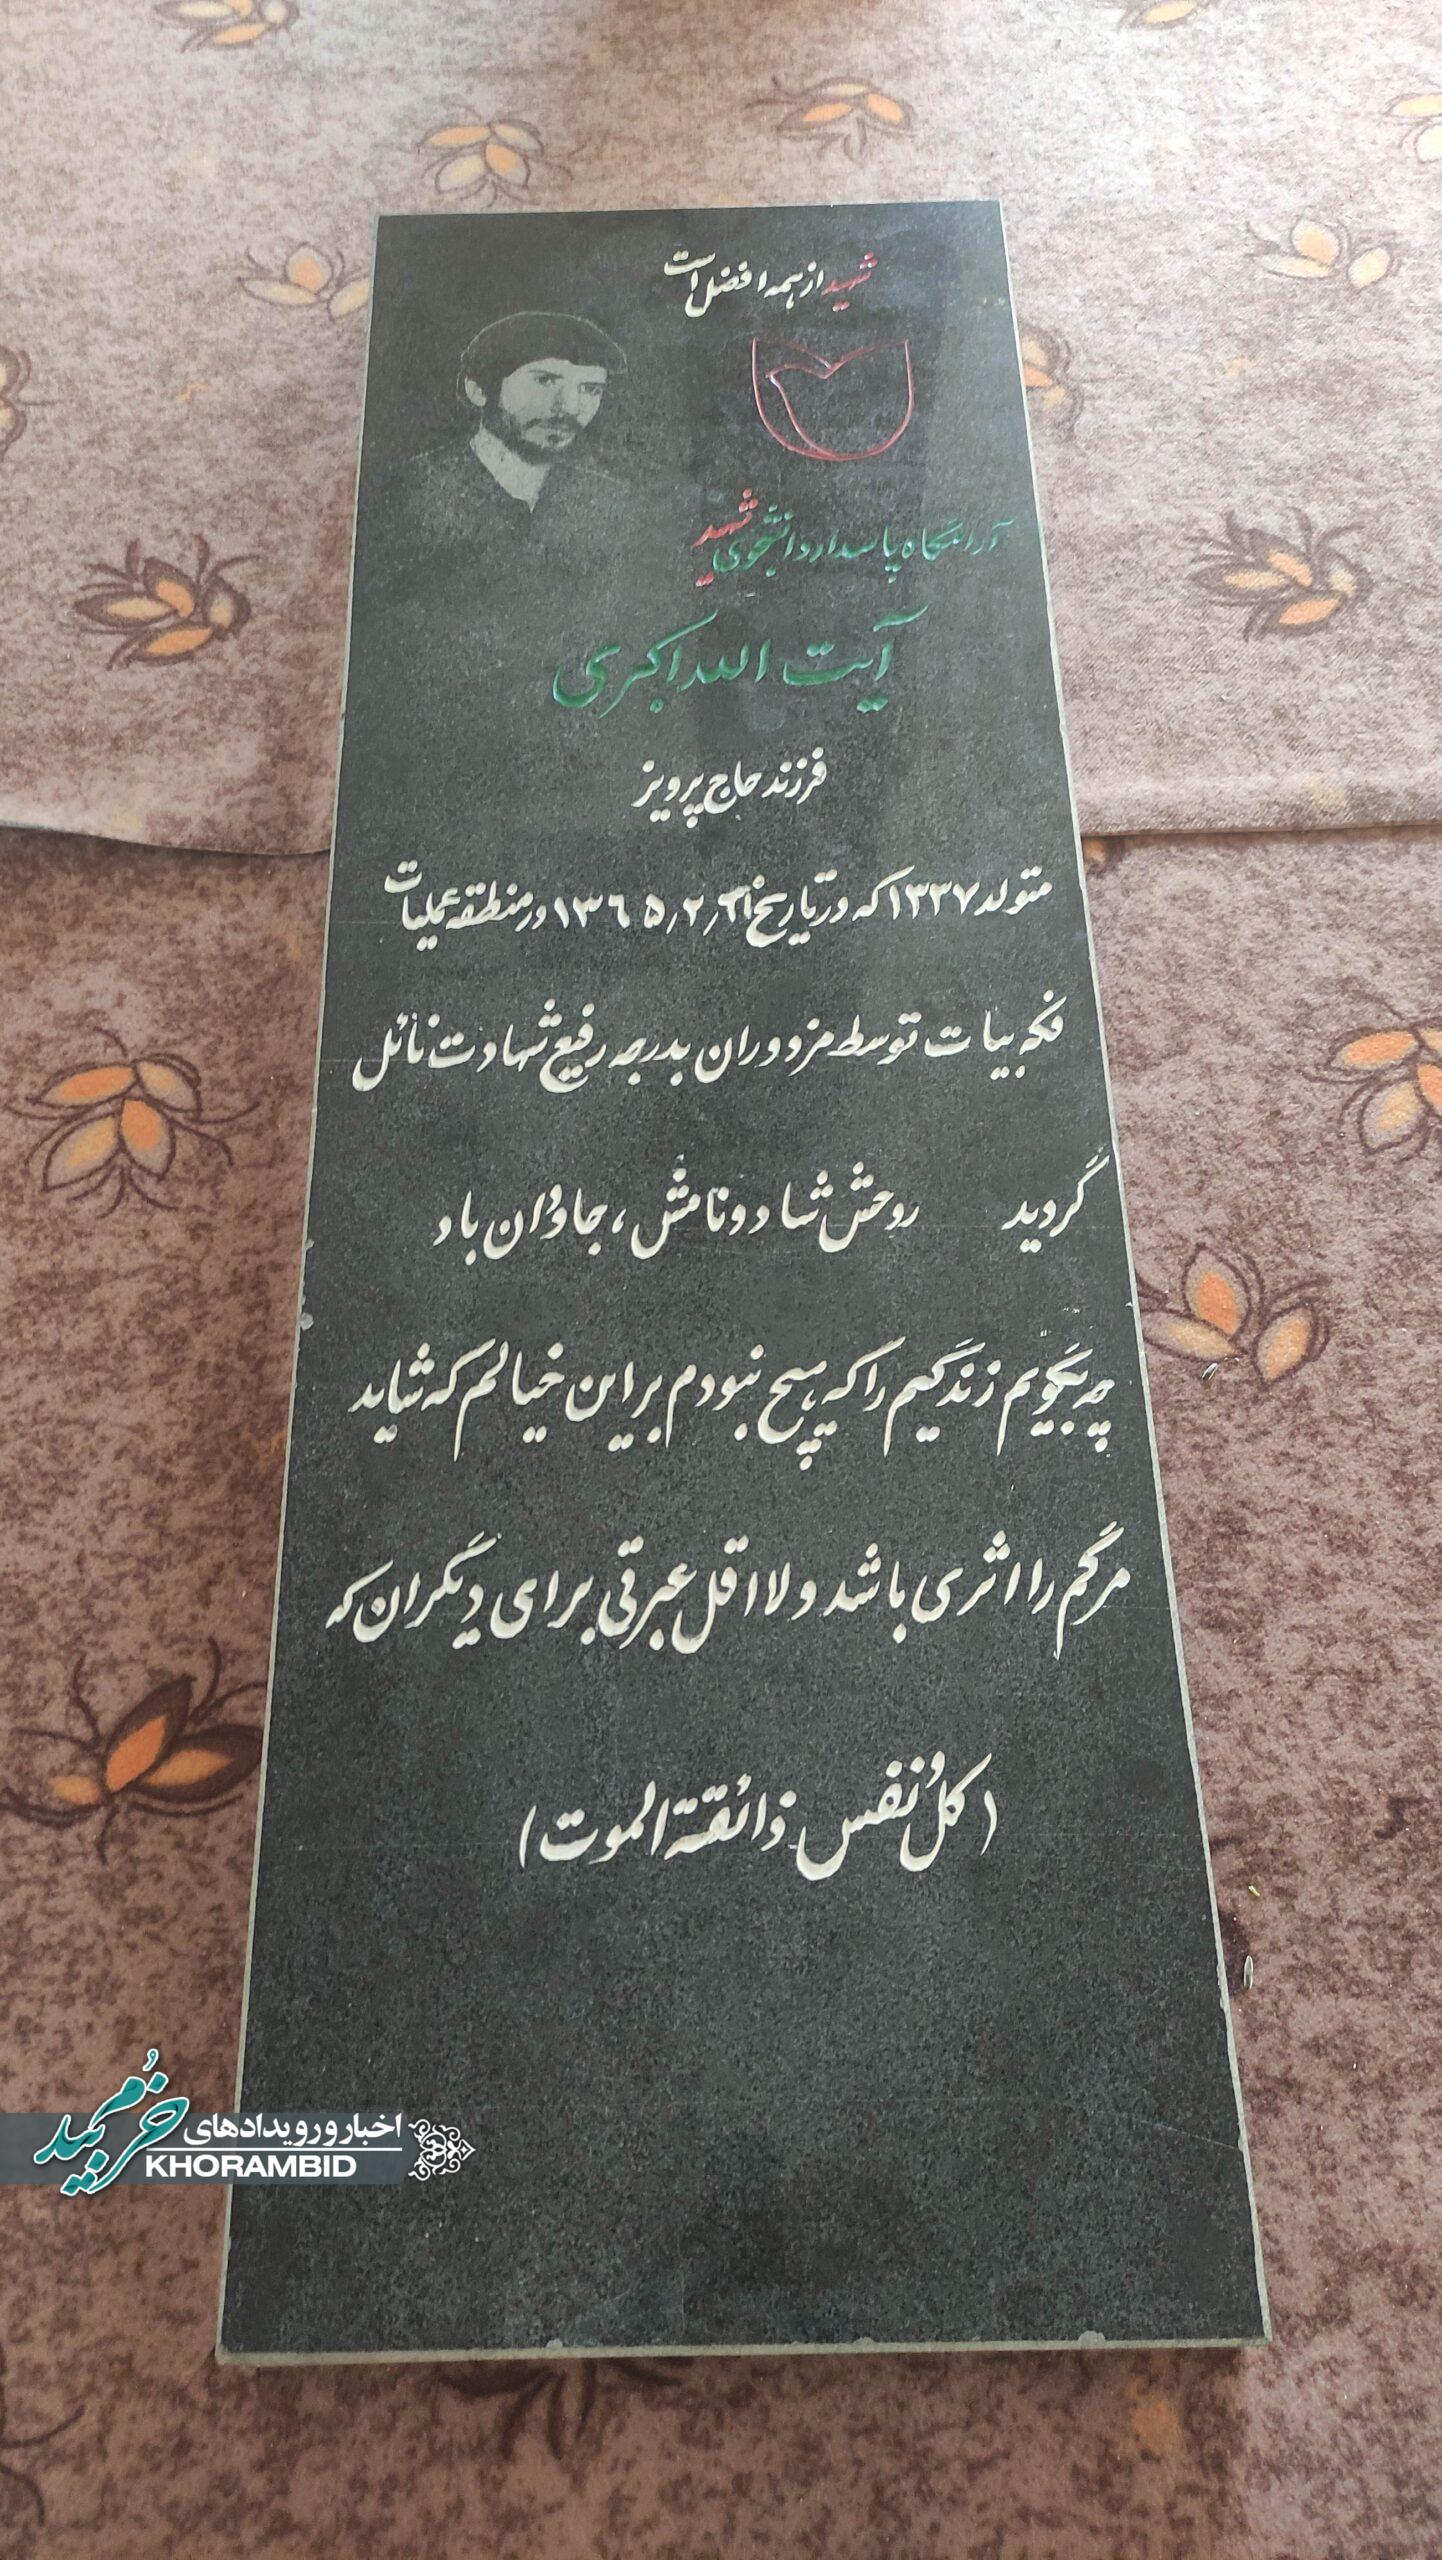 شهید از همه افضل است
آرامگاه پاسدار دانشجوی شهید
آیت الله اکبری
فرزند حاج پرویز
متولد ۱۳۳۷ که در تاریخ ۱۳۶۵٫۲٫۳۱ در منطقه عملیات
فکه بیات توسط مزدوران بدرجه رفیع شهادت نائل
گردید روحش شاد و نامش، جاودان باد
چه بگویم زندگیم را که هیچ نبودم بر این خیالم که شاید
مرگم را اثری باشد و لااقل عبرتی برای دیگران که
(کلُ نفس ذائقة الموت)
اخبار و رویدادهای
خرمبید
KHORAMBID